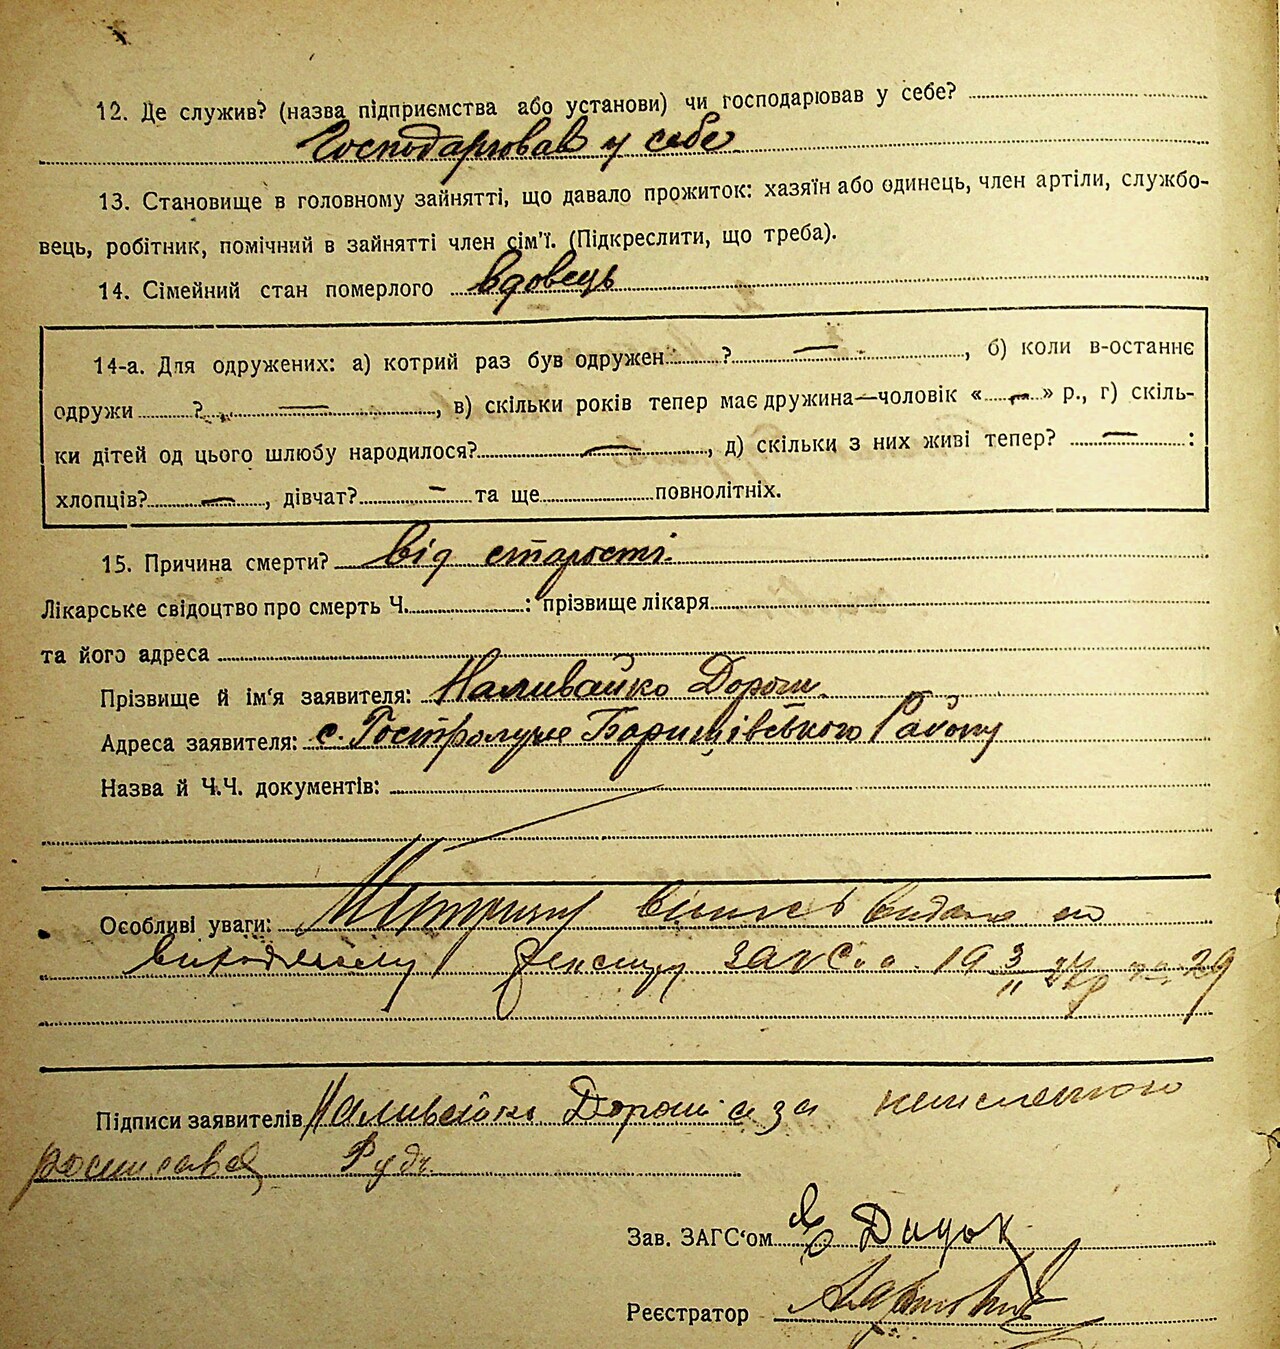 12. Де служив? (назва підприємства або установи) чи господарював у себе?
Господарював у себе
13. Становище в головному зайнятті, що давало прожиток: хазяїн або одинець, член артіли, службо-
вець, робітник, помічний в зайнятті член сім'ї. (Підкреслити, що треба).
14. Сімейний стан померлого вдовець
14-а. Для одружених: а) котрий раз був одружен ? — , б) коли в-останнє
одружи ? — , в) скільки років тепер має дружина—чоловік « — » р., г) скіль-
ки дітей од цього шлюбу народилося? — , д) скільки з них живі тепер? — :
хлопців? — , дівчат? — та ще повнолітніх.
15. Причина смерти? від старості.
Лікарське свідоцтво про смерть Ч. : прізвище лікаря
та його адреса
Прізвище й ім'я заявителя: Наливайко Дорош.
Адреса заявителя: с. Гостролучє Баришівського Району
Назва й Ч.Ч. документів:
Особливі уваги: видано по
ЗАГС 19 3/11 29
Підписи заявителів Наливайко Дорош а за
росписався Рудь
Зав. ЗАГС'ом
Реєстратор